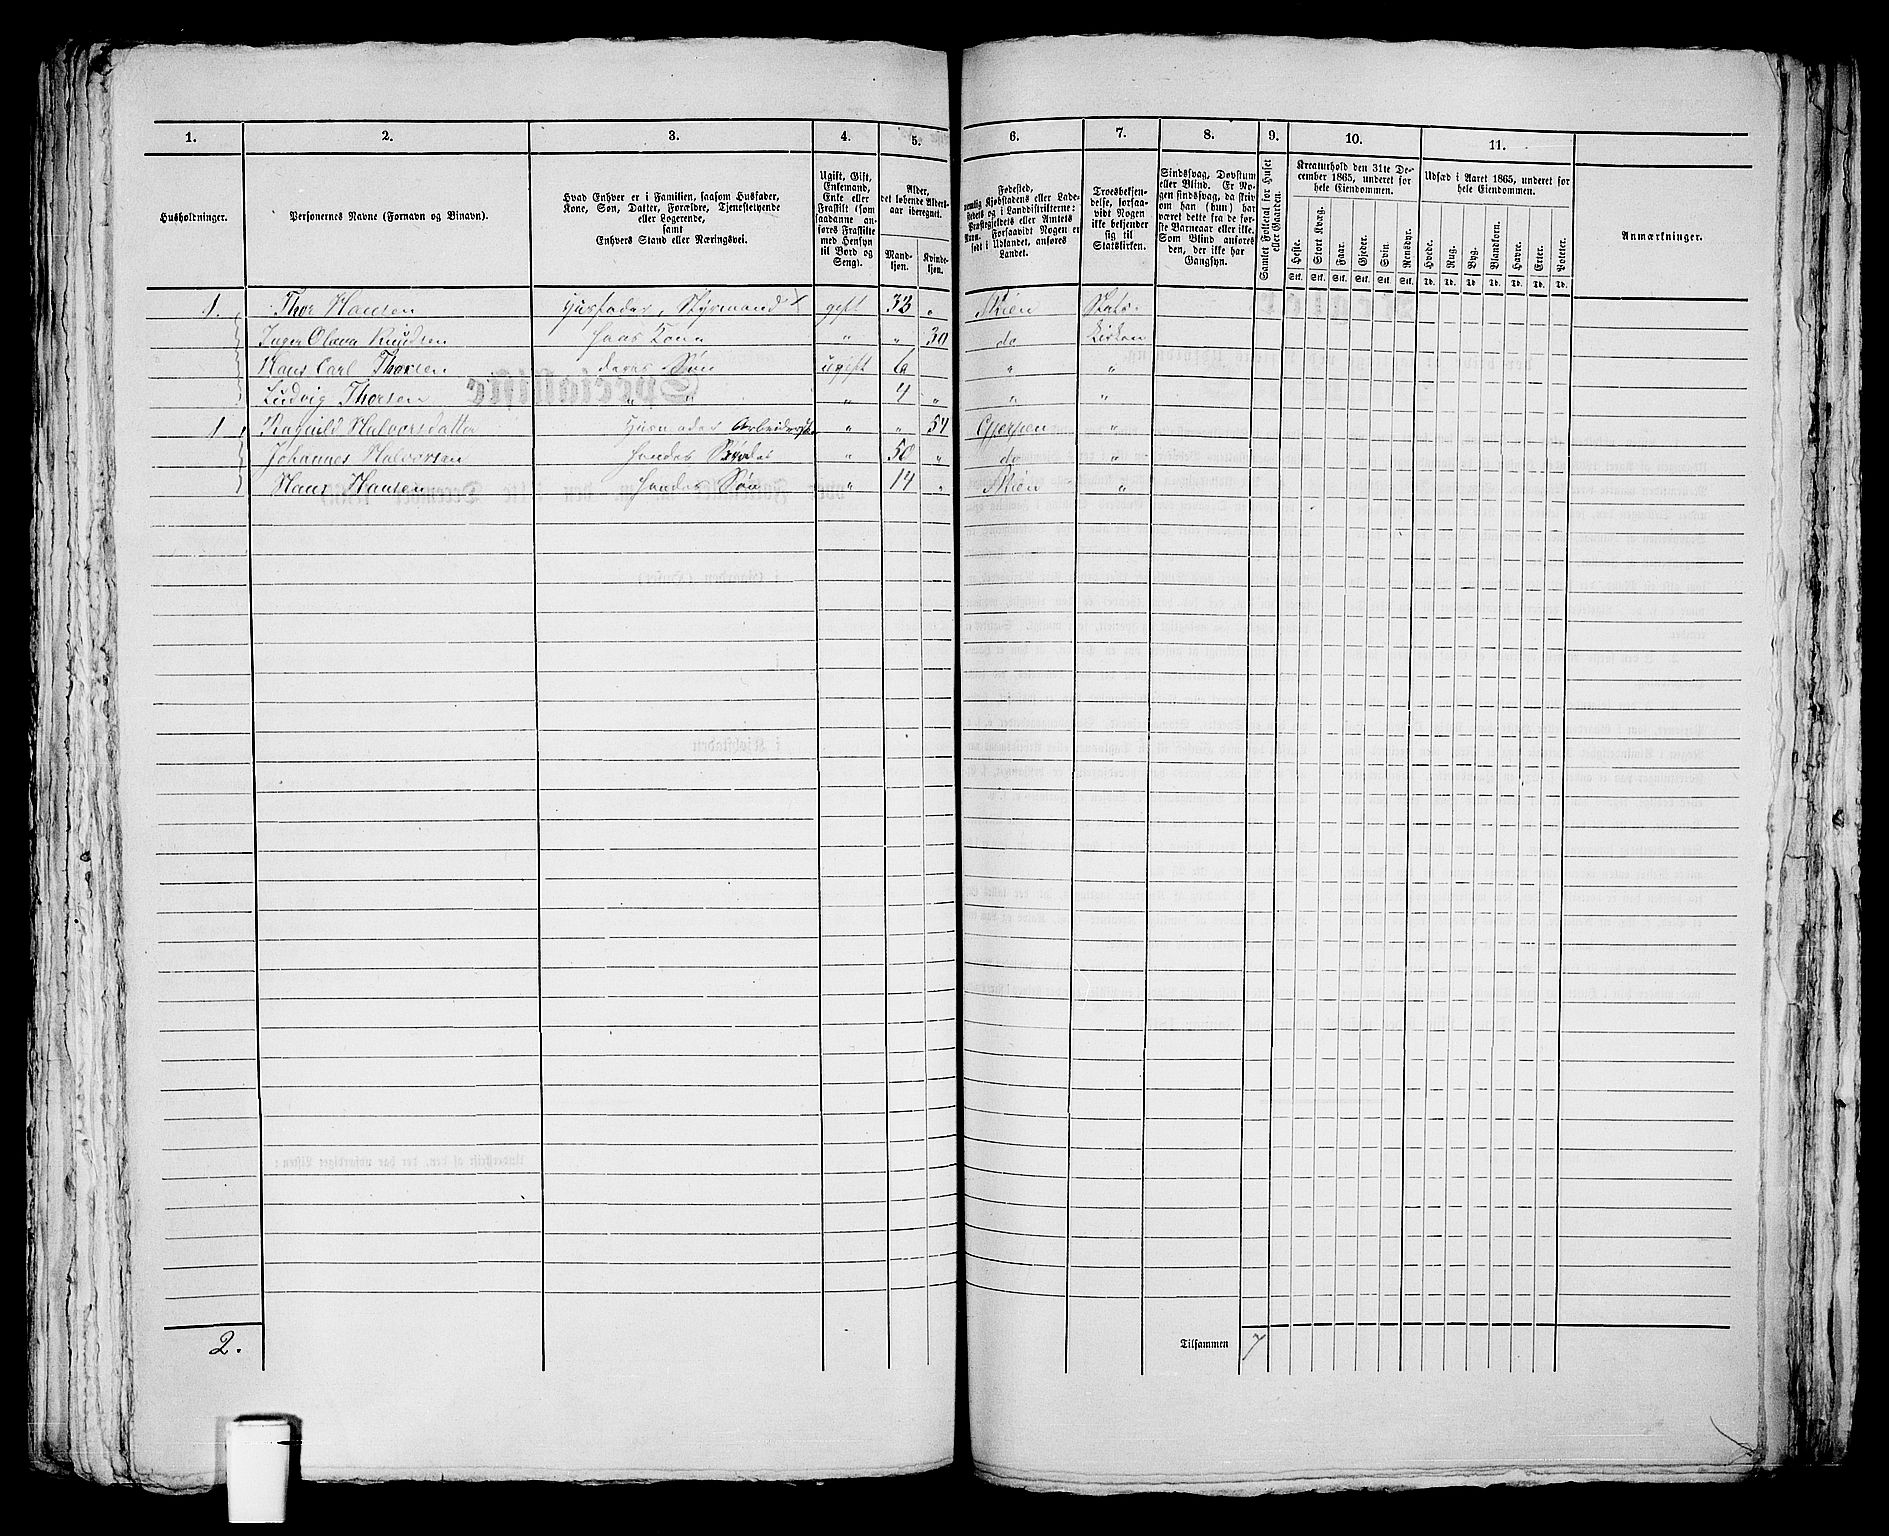 1. 2. 3. 4. 5. 6. 7. 8. 9. 10. 11.
Husholdninger.
Personernes Navne (Fornavn og Binavn).
Hvad Enhver er i Familien, saasom Husfader,
Kone, Søn, Datter, Forældre, Tjenestetyende
eller Logerende,
samt
Enhvers Stand eller Næringsvei.
Ugift, Gift,
Enkemand,
Enke eller
Fraskilt (som
saadanne an-
føres Fraskilte
med Hensyn
til Bord og
Seng).
Alder,
det løbende Alders-
aar iberegnet.
Mand-
kjøn.
Kvinde-
kjøn.
Fødested,
nemlig Kjøbstadens eller Lade-
stedets og i Landdistrikterne:
Præstegjeldets eller Amtets
Navn. Forsaavidt Nogen er
født i Udlandet, anføres
Landet.
Troesbekjen-
delse, forsaa-
vidt Nogen
ikke bekjender
sig til
Statskirken.
Sindssvag, Døvstum
eller Blind. Er No-
gen sindssvag, da skriv
om han (hun) har
været dette fra de før-
ste Barneaar eller ikke.
Som Blind anføres
den, der ikke har
Gangsyn.
Samlet Folketal for Huset
eller Gaarden.
Kreaturhold den 31te De-
cember 1865, underet for
hele Eiendommen.
Heste. Stort Kvæg. Faar. Gjeder. Svin. Rensdyr.
Stk. Stk. Stk. Stk. Stk. Stk.
Udsæd i Aaret 1865, underet for
hele Eiendommen.
Hvede. Rug. Byg. Blandkorn. Havre. Erter. Poteter.
Td. Td. Td. Td. Td. Td. Td.
Anmærkninger.
1. Thor Hansen Husfader, Styrmand gift 33 " Skien Stats-
Inger Olava Knudsen hans Kone " " 30 do Kirken
Hans Carl Thorsen deres Søn ugift 6 " "
Ludvig Thorsen " " " 4 " " "
1 Ragnild Halvorsdatter Husmoder " " 54 Gjerpen "
Johannes Halvorsen hendes " 50 " do "
Hans Hansen hendes Søn " 14 " Skien "
2. Tilsammen 7